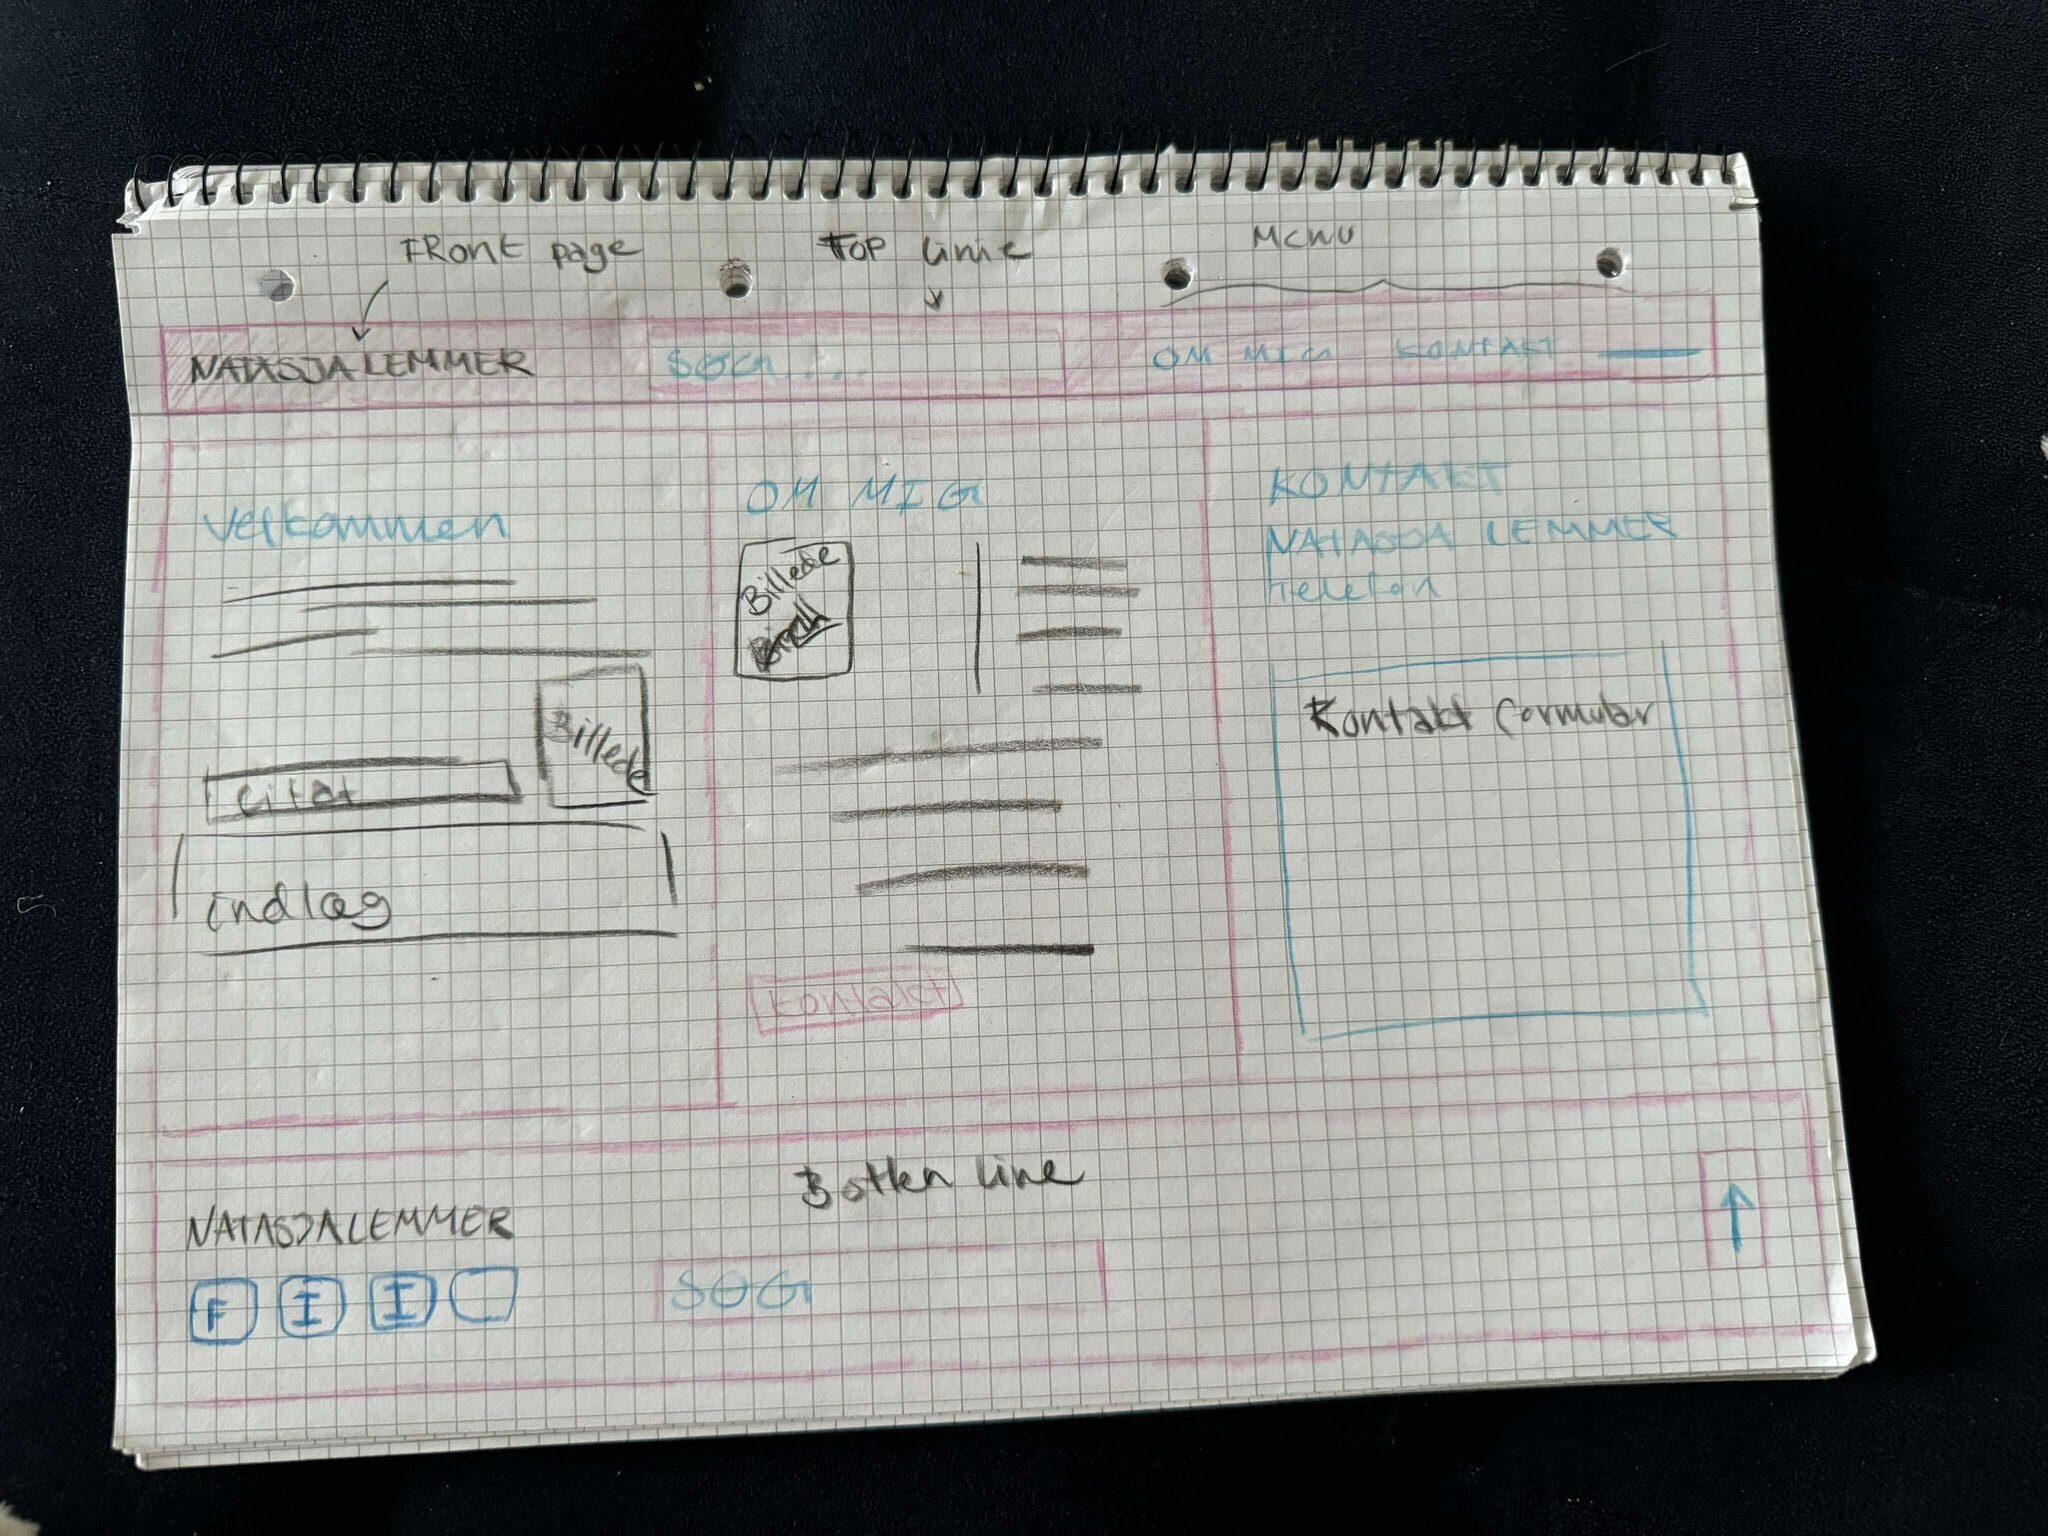 FRont page
TOP linie
Menu
NATASJALEMMER
SØG....
OM MIG KONTAKT
Velkommen
Billede
Citat
indlæg
OM MIG
Billede
kontakt
KONTAKT
NATASJA LEMMER
Telefon
Kontakt formular
Botten line
NATASJALEMMER
F I I
SØG